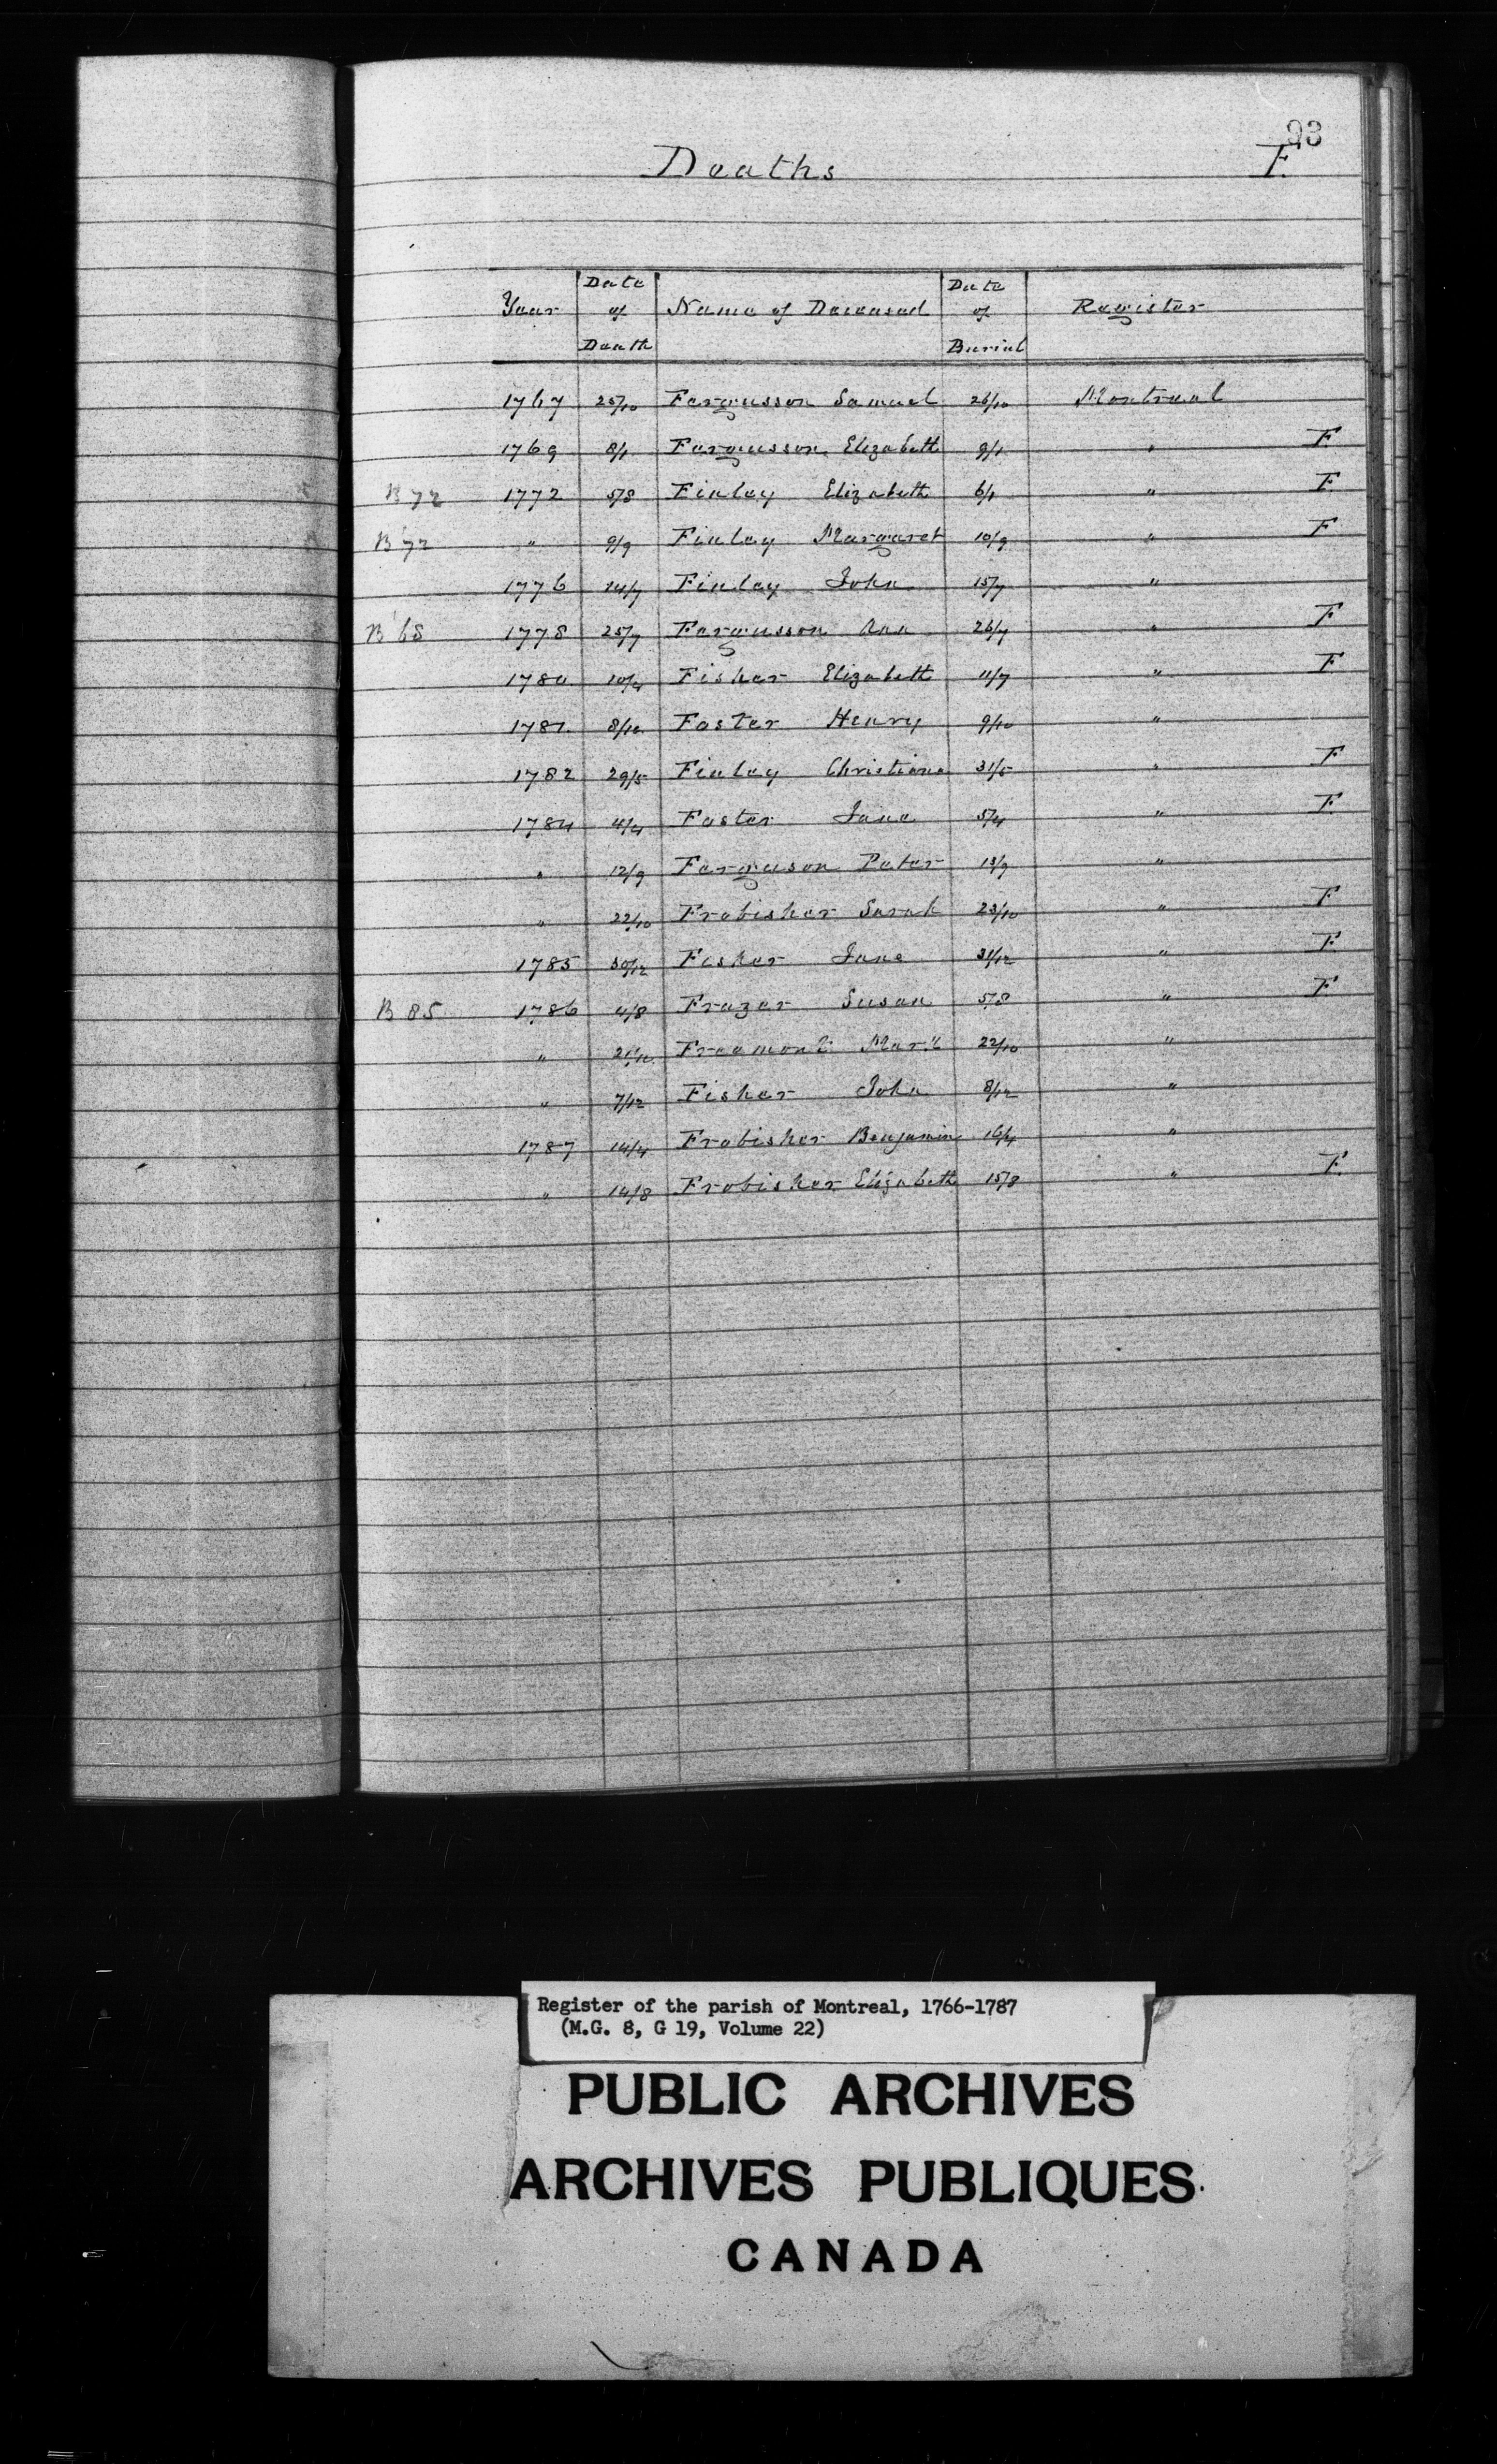 93
Deaths F.
Year Date of Death Name of Deceased Date of Burial Register
1767 25/10 Fergusson Samuel 26/10 Montreal
1769 8/1 Fergusson Elizabeth 9/1 " F
B 72 1772 5/8 Finlay Elizabeth 6/1 " F
B 72 " 9/9 Finlay Margaret 10/9 " F
1776 14/7 Finlay John 15/7 "
B 68 1778 25/7 Fergusson Ann 26/7 " F
1780 10/4 Fisher Elizabeth 11/7 " F
1781 8/10 Foster Henry 9/10 "
1782 29/5 Finlay Christiana 31/5 " F
1784 4/4 Foster Jane 5/4 " F
" 12/9 Ferguson Peter 13/9 "
" 22/10 Frobisher Sarah 23/10 " F
1785 30/12 Fisher Jane 31/12 " F
B 85 1786 4/8 Frazer Susan 5/8 " F
" Freemont 22/10 "
" 7/12 Fisher John 8/12 "
1787 14/4 Frobisher Benjamin 16/4 "
" 14/8 Frobisher Elizabeth 15/8 " F
Register of the parish of Montreal, 1766-1787
(M.G. 8, G 19, Volume 22)
PUBLIC ARCHIVES
ARCHIVES PUBLIQUES
CANADA